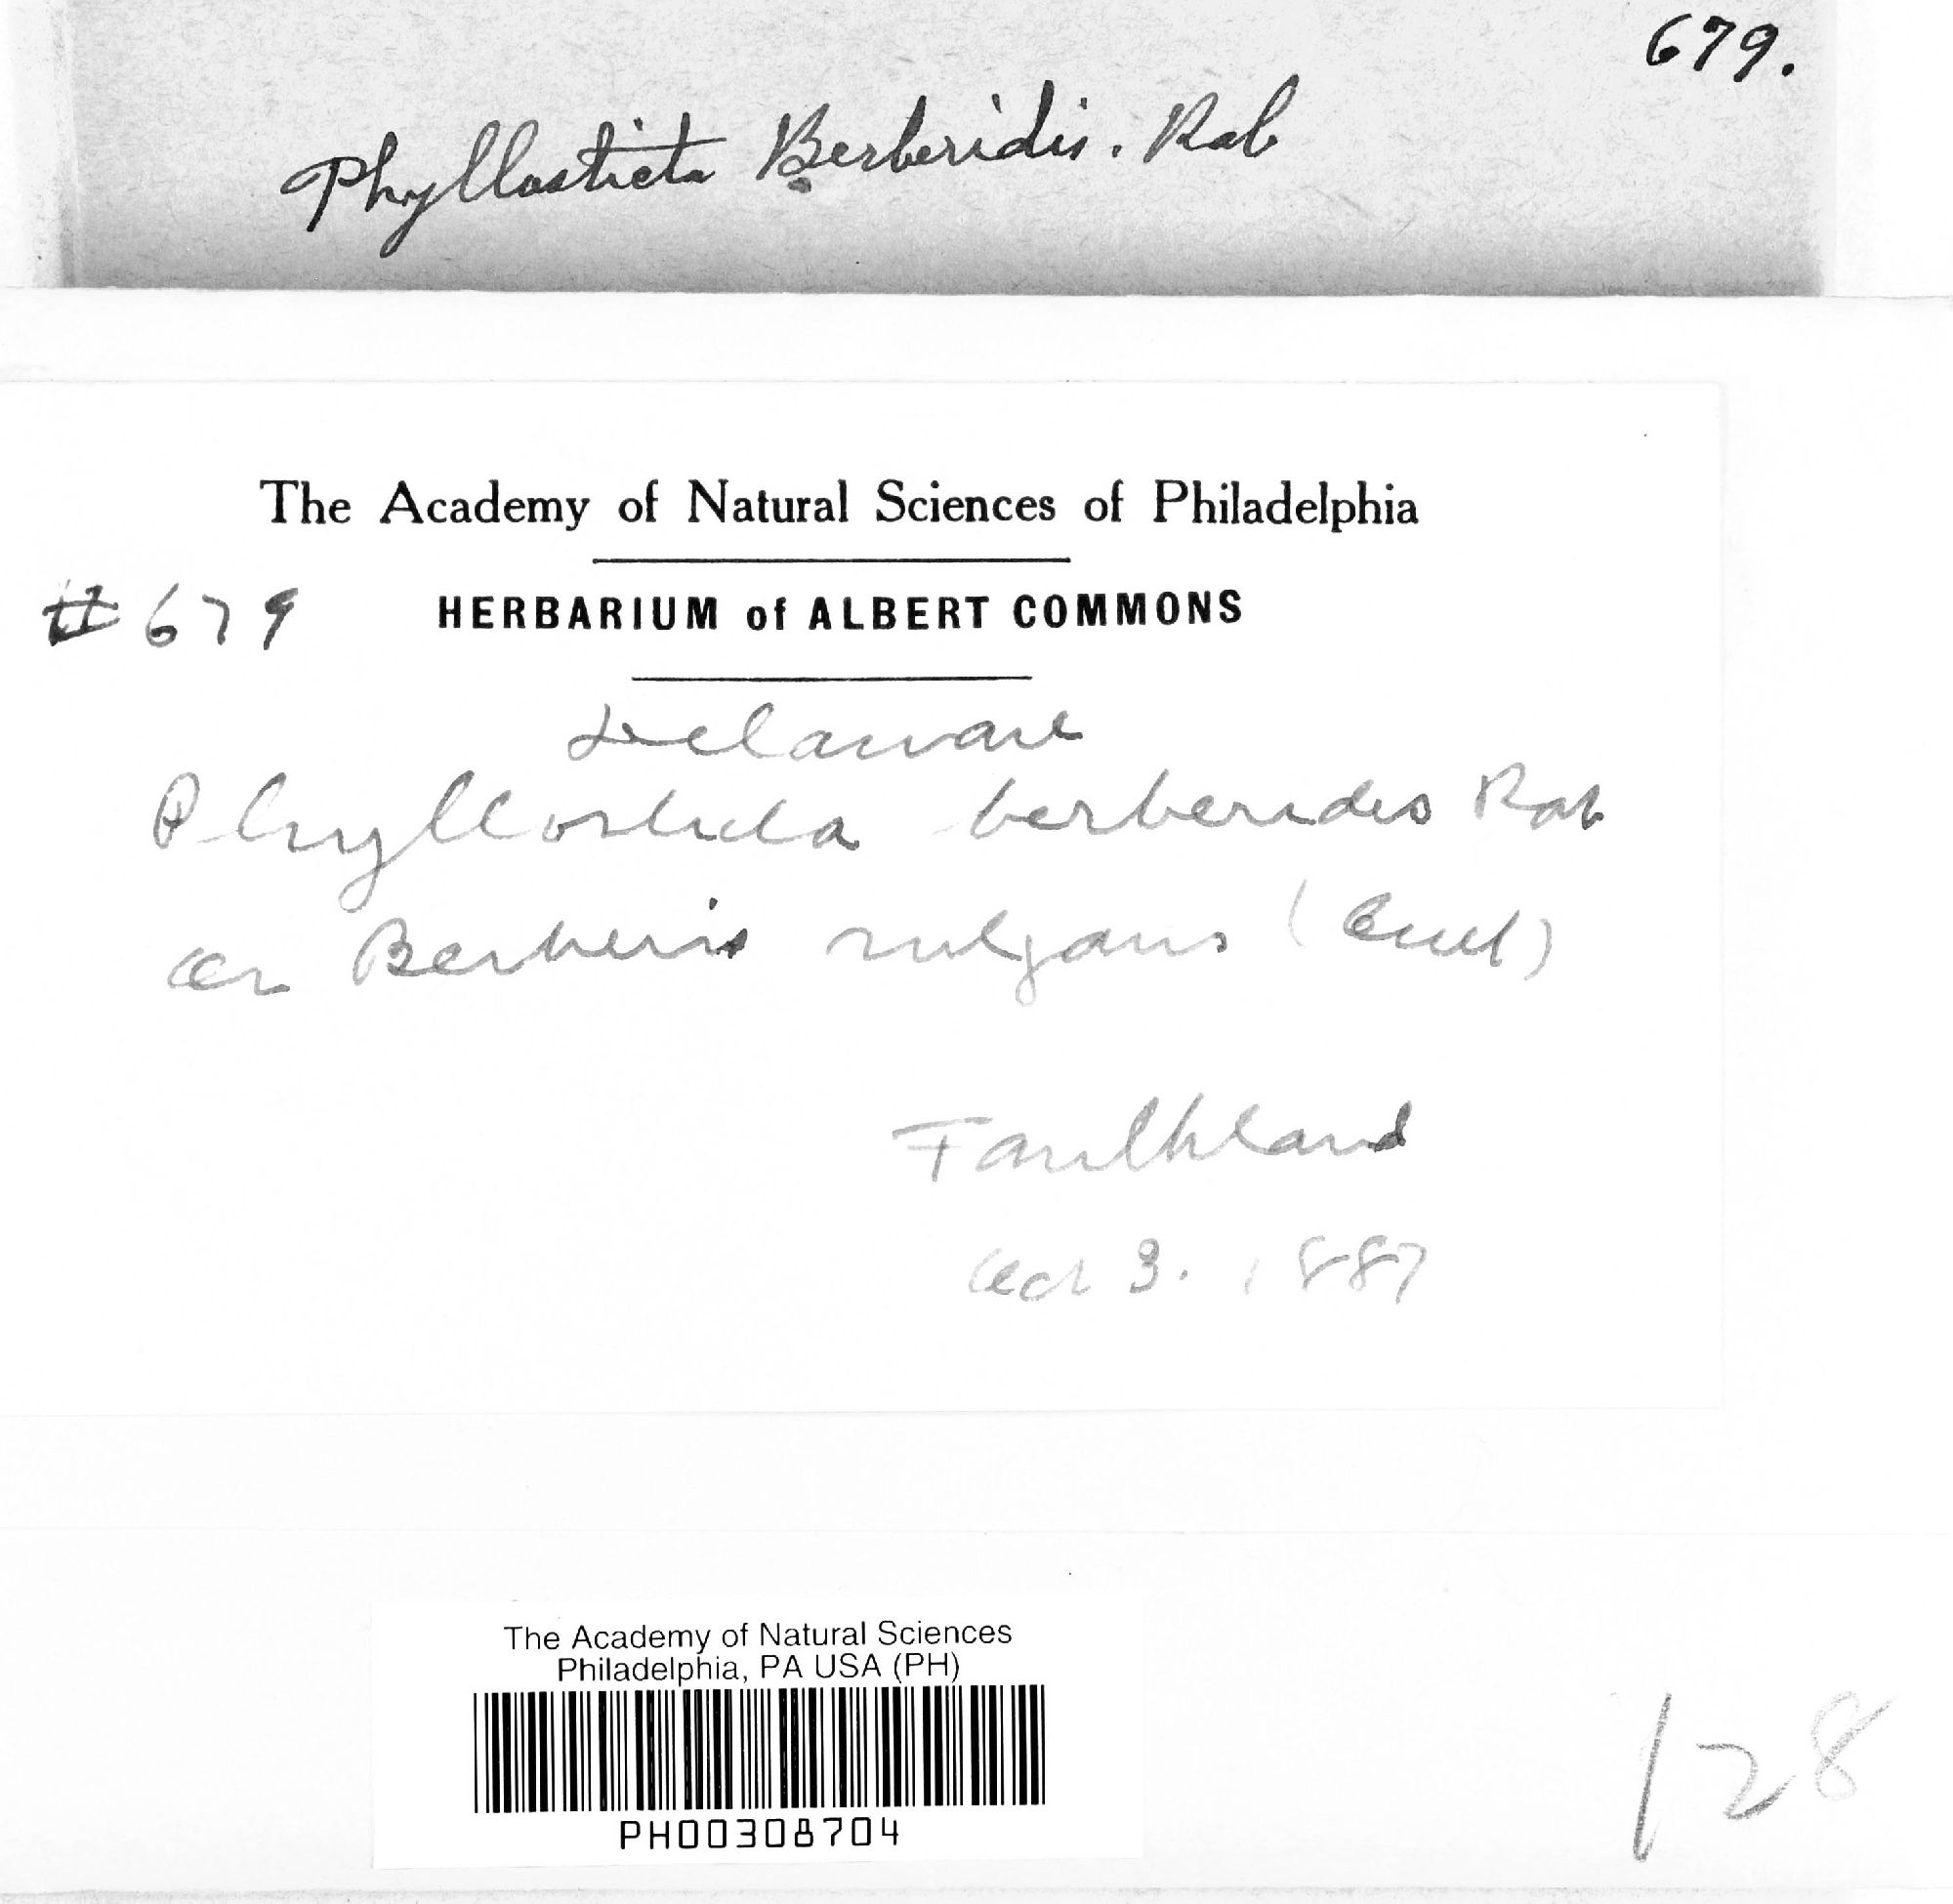 679.
Phyllosticta Berberidis. Rab
The Academy of Natural Sciences of Philadelphia
#679 HERBARIUM of ALBERT COMMONS
Delaware
Phyllosticta berberidis Rab
on Berberis vulgaris (Cult)
Faulkland
Oct 3. 1887
The Academy of Natural Sciences
Philadelphia, PA USA (PH)
PH00308704
128